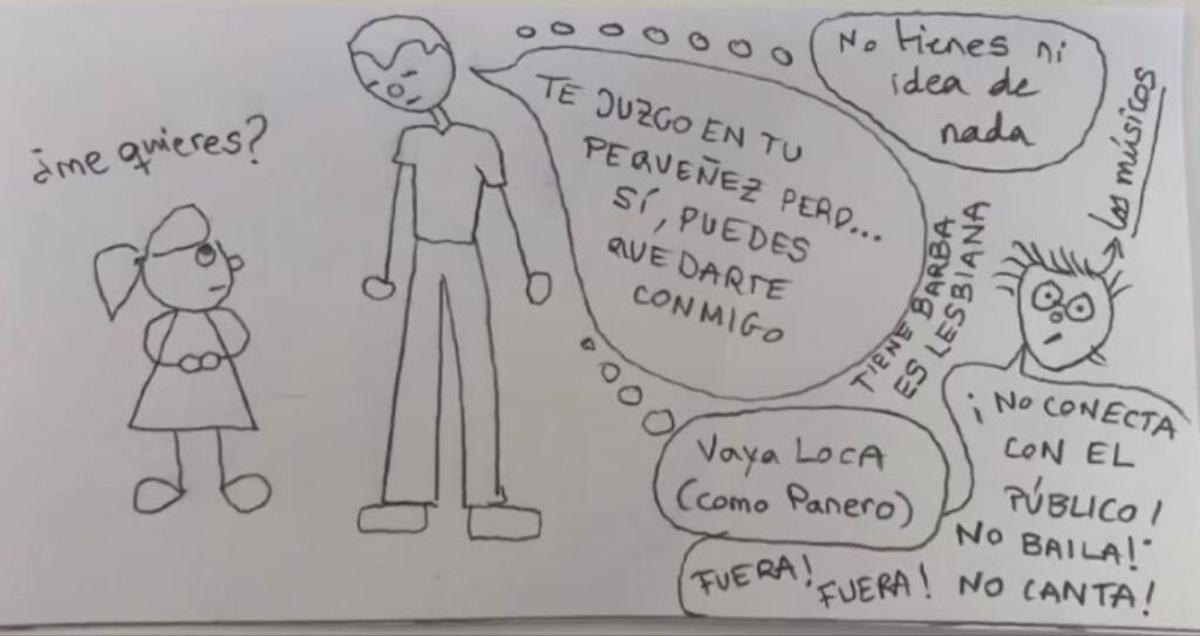 ¿me quieres?
TE JUZGO EN TU
PEQUEÑEZ PERO...
SÍ, PUEDES
QUEDARTE
CONMIGO
No tienes ni
idea de
nada
Los músicos
TIENE BARBA
ES LESBIANA
Vaya LOCA
(como Panero)
¡NO CONECTA
CON EL
PÚBLICO!
NO BAILA!
FUERA! FUERA! NO CANTA!